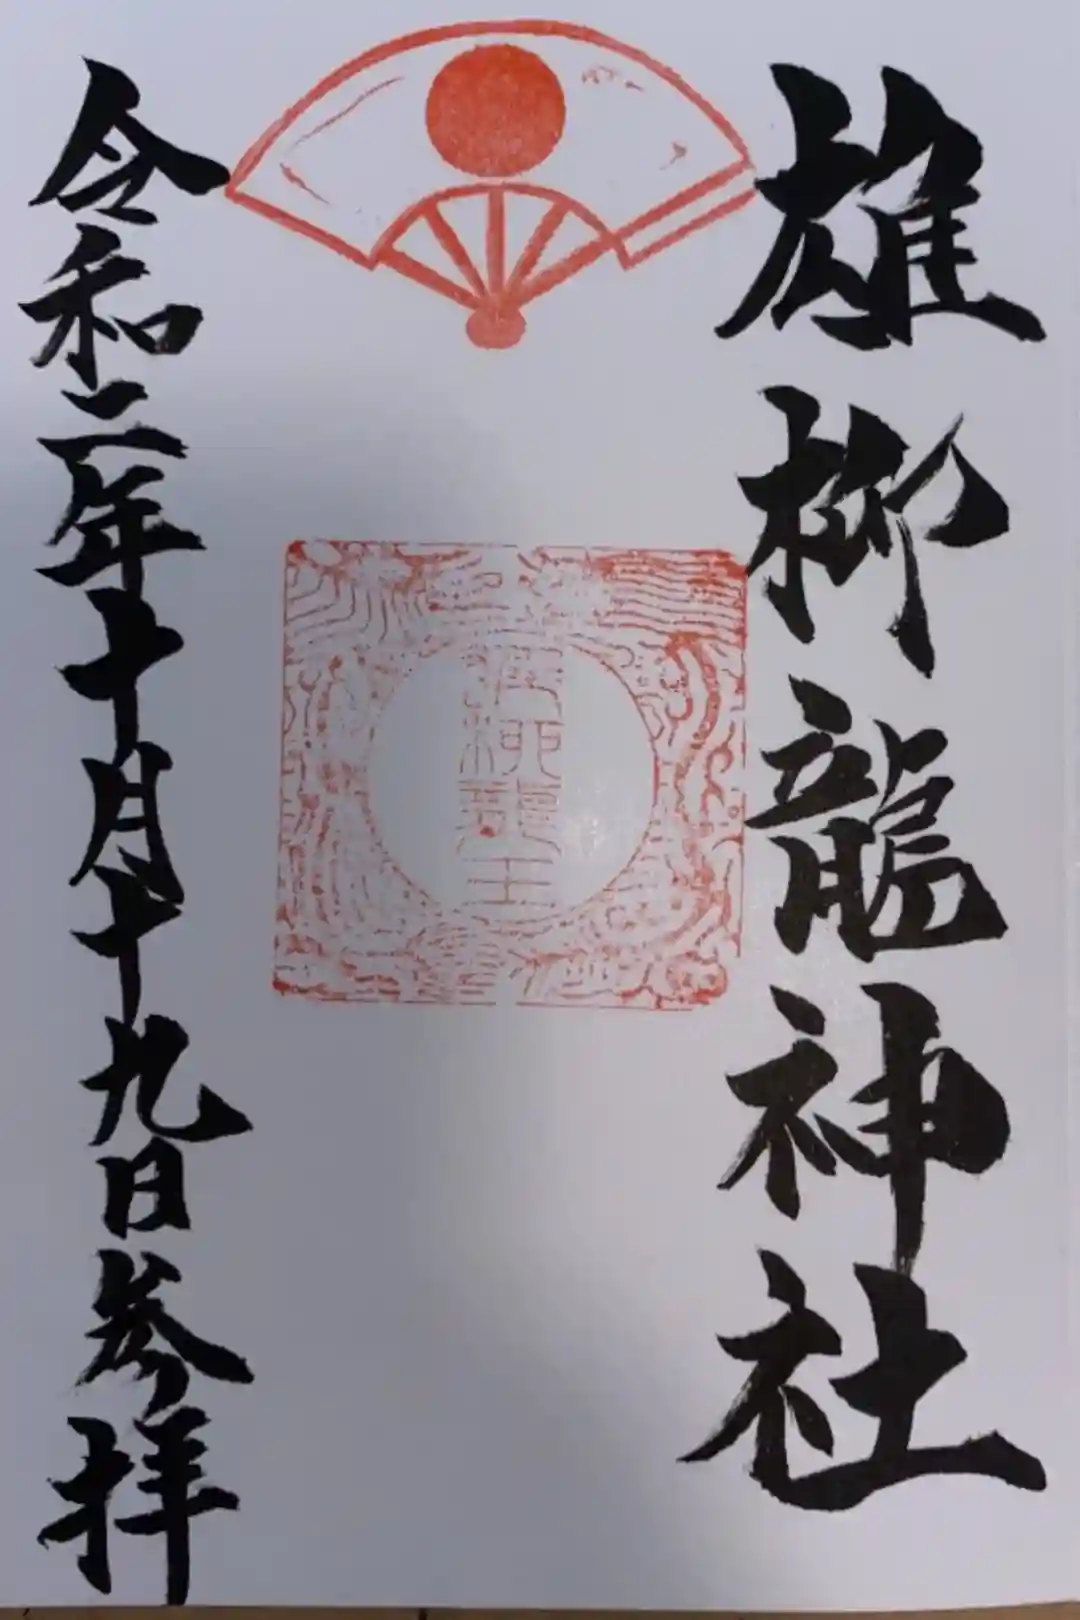 雄柳龍神社
令和二年十月十九日参拝